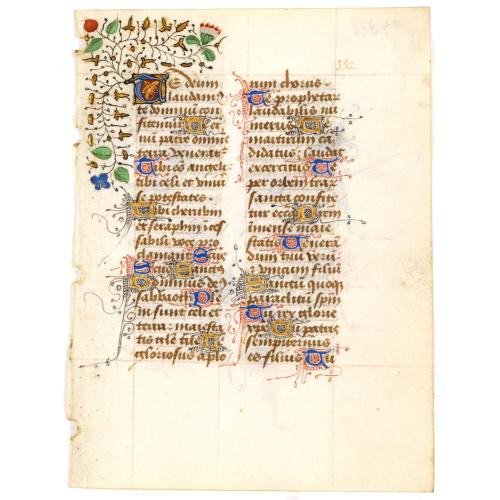 Te deum
laudam
te dominu con
fitemur Te et
nu patre omnis
terra venerat
Tibi oes angeli
tibi celi et vniv
se potestates
Tibi cherubim
et seraphim ces
sabili voce pro
clamant S
Sanctus
dominus de
sabaoth Ple
ni sunt celi et
terra: maiesta
tis glorie tue Te
gloriosus aplo
rum chorus
Te prophetar
laudabilis nu
merus Te
martirum ca
didatus: laudat
exercitus Te
per orbem trar
sancta confite
tur ecca Prem
mense maie
statis Venera
dum tuu veru
et vnicum filiu
Sanctu quoqz
paraclitu spm
Tu rex glorie
xpe Tu patris
sempiternus
es filius Tu